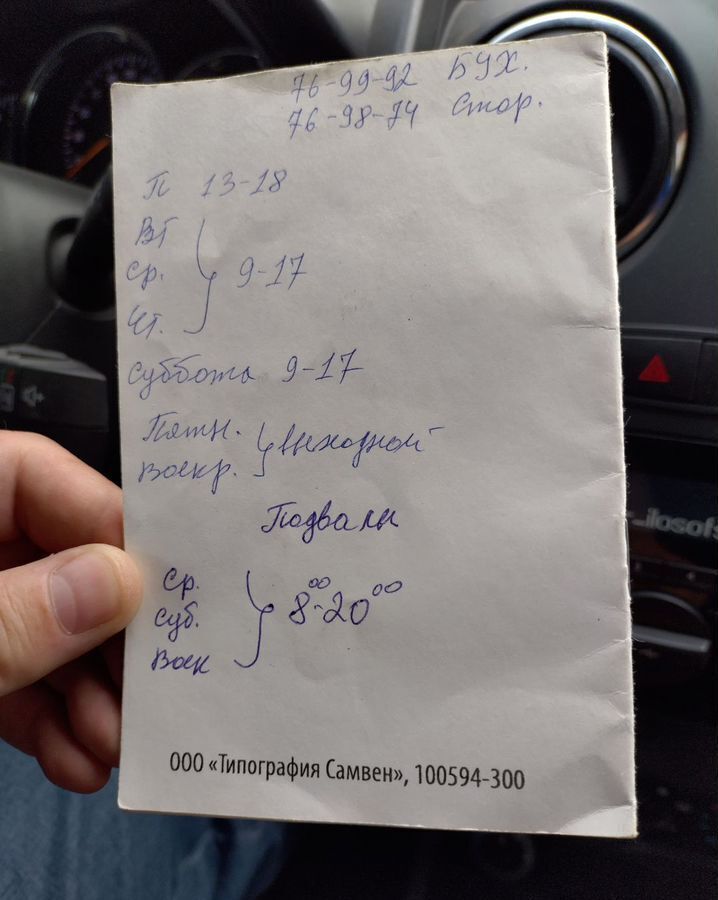 76-99-92 БУХ.
76-98-74 Стор.
П 13-18
Вт
Ср.
Чт.
9-17
Суббота 9-17
Пятн.
Воскр.
выходной
Подвалы
Ср.
Суб.
Воск
8⁰⁰-20⁰⁰
ООО «Типография Самвен», 100594-300